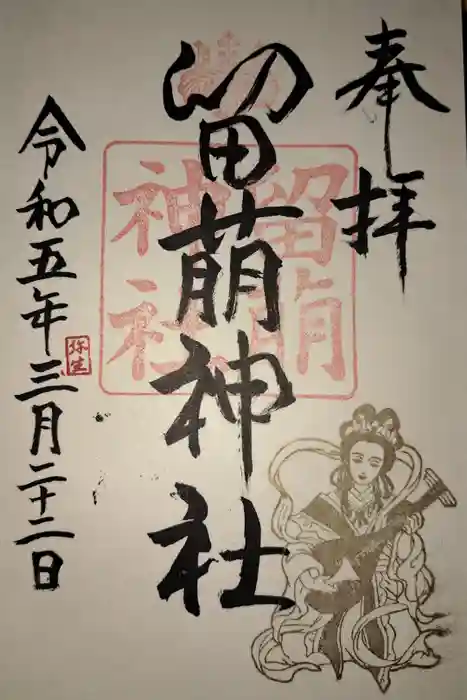 奉拝
留萌神社
留萌
神社
令和五年三月二十二日
弥生